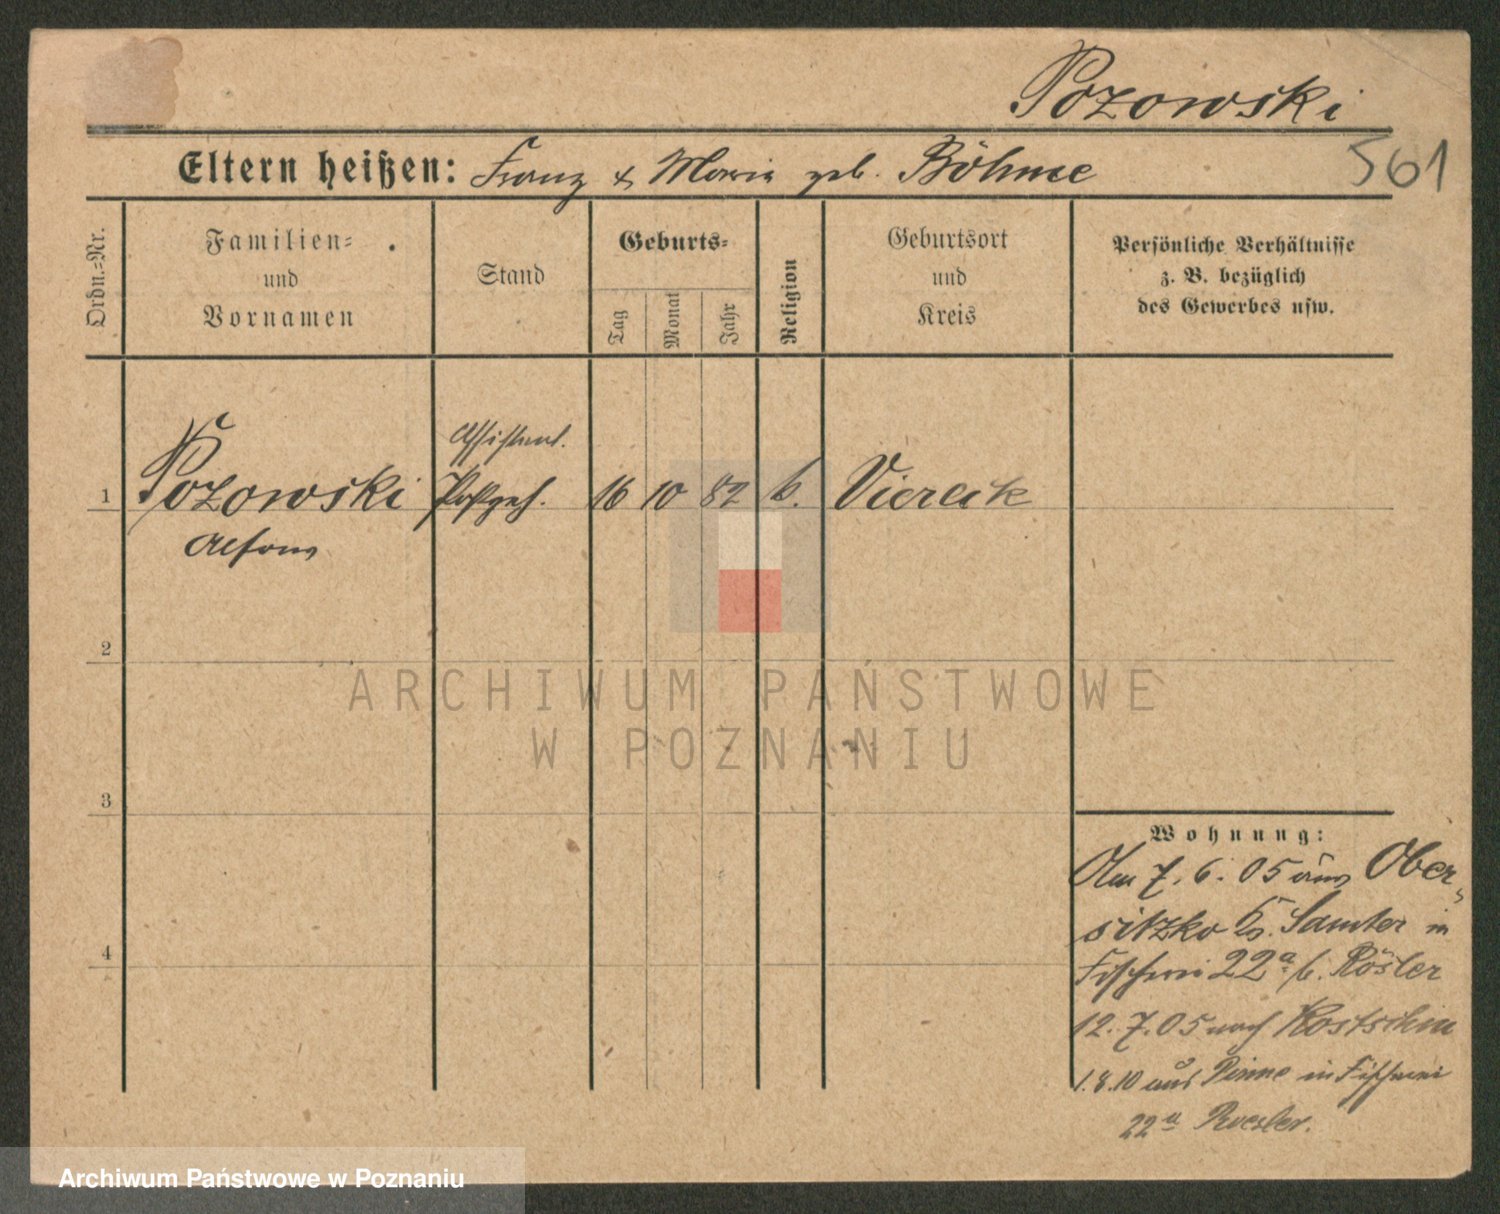 Pozowski
561
Eltern heißen: Franz & Maria geb. Böhme
Ordn.-Nr.
Familien-
und
Vornamen
Stand
Geburts-
Tag
Monat
Jahr
Religion
Geburtsort
und
Kreis
Persönliche Verhältnisse
z. B. bezüglich
des Gewerbes usw.
Assistent.
1 Pozowski Postgeh. 16 10 82 k. Viereck
Alfons
2
3
4
ARCHIWUM PAŃSTWOWE
W POZNANIU
Wohnung:
Am 7. 6. 05 aus Ober-
sitzko Kr. Samter in
Fischerei 22a b. Rösler
12. 7. 05 nach Kostschin
1.8.10 aus Pinne in Fischerei
22a Roesler.
Archiwum Państwowe w Poznaniu